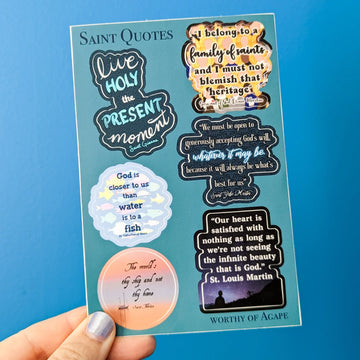 SAINT QUOTES
live
HOLY
the
PRESENT
moment
Saint Gianna
"I belong to a
family of saints,
and I must not
blemish that
heritage."
"We must be open to
generously accepting God's will,
whatever it may be,
because it will always be what's
best for us"
God is
closer to us
than
water
is to a
fish
"Our heart is
satisfied with
nothing as long as
we're not seeing
the infinite beauty
that is God."
St. Louis Martin
The world's
thy ship and not
thy home
WORTHY OF AGAPE